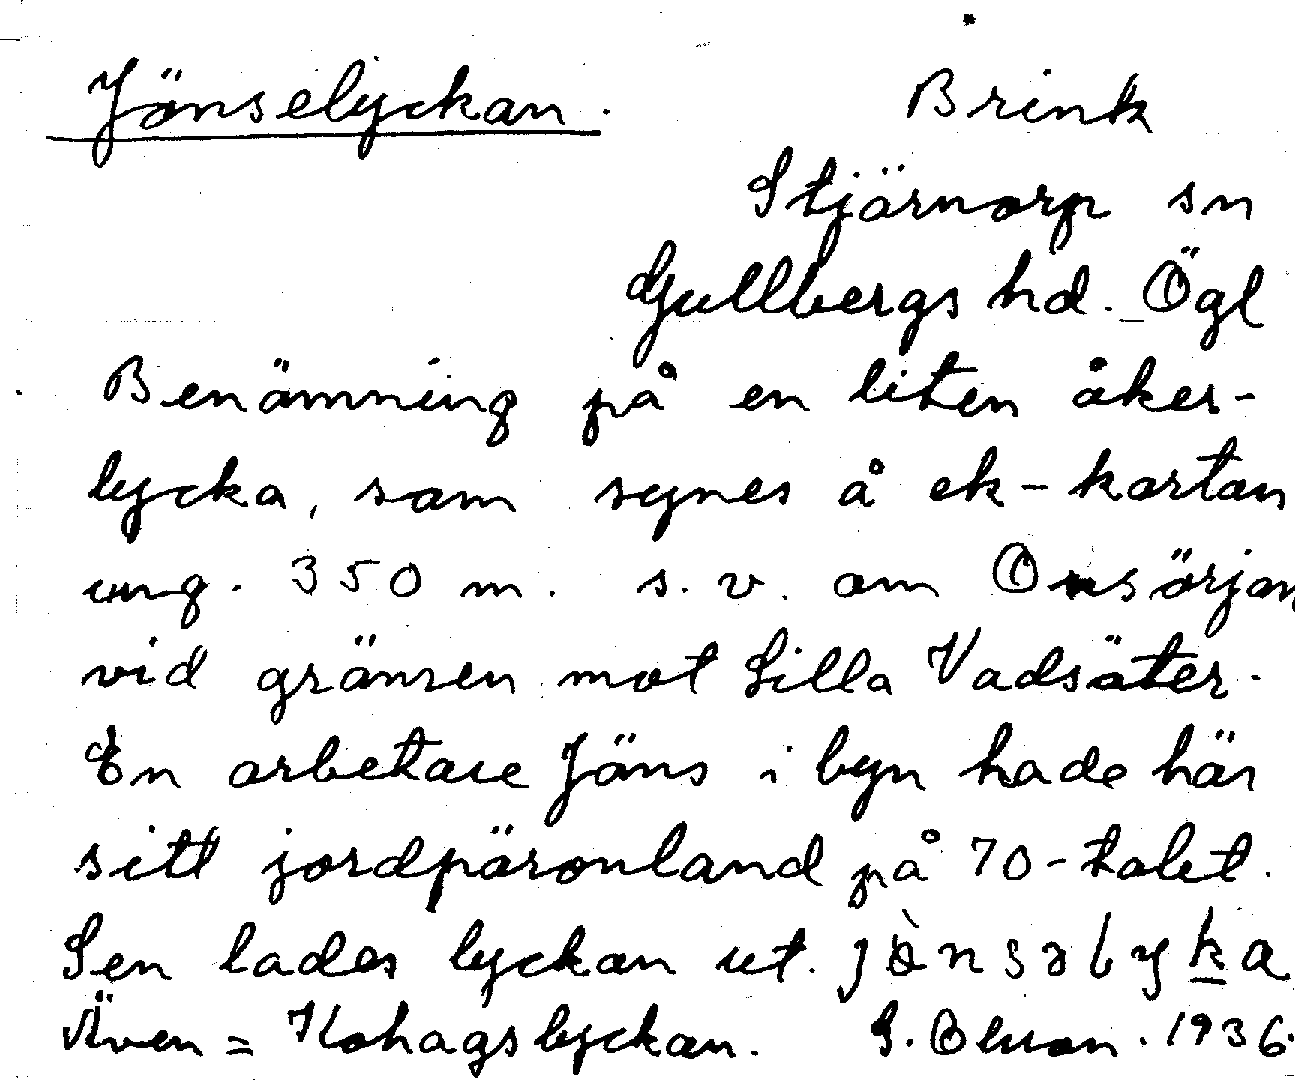 Jönselyckan.
Brink
Stjärnorp sn
Gullbergs hd. Ögl
Benämning på en liten åker-
lycka, som synes å ek-kartan
ung. 350 m. s.v. om Onsörjan
vid gränsen mot Lilla Vadsäter.
En arbetare Jöns i byn hade här
sitt jordpäronland på 70-talet.
Sen lades lyckan ut.
Även = Kohagslyckan. G. Olsson. 1936.